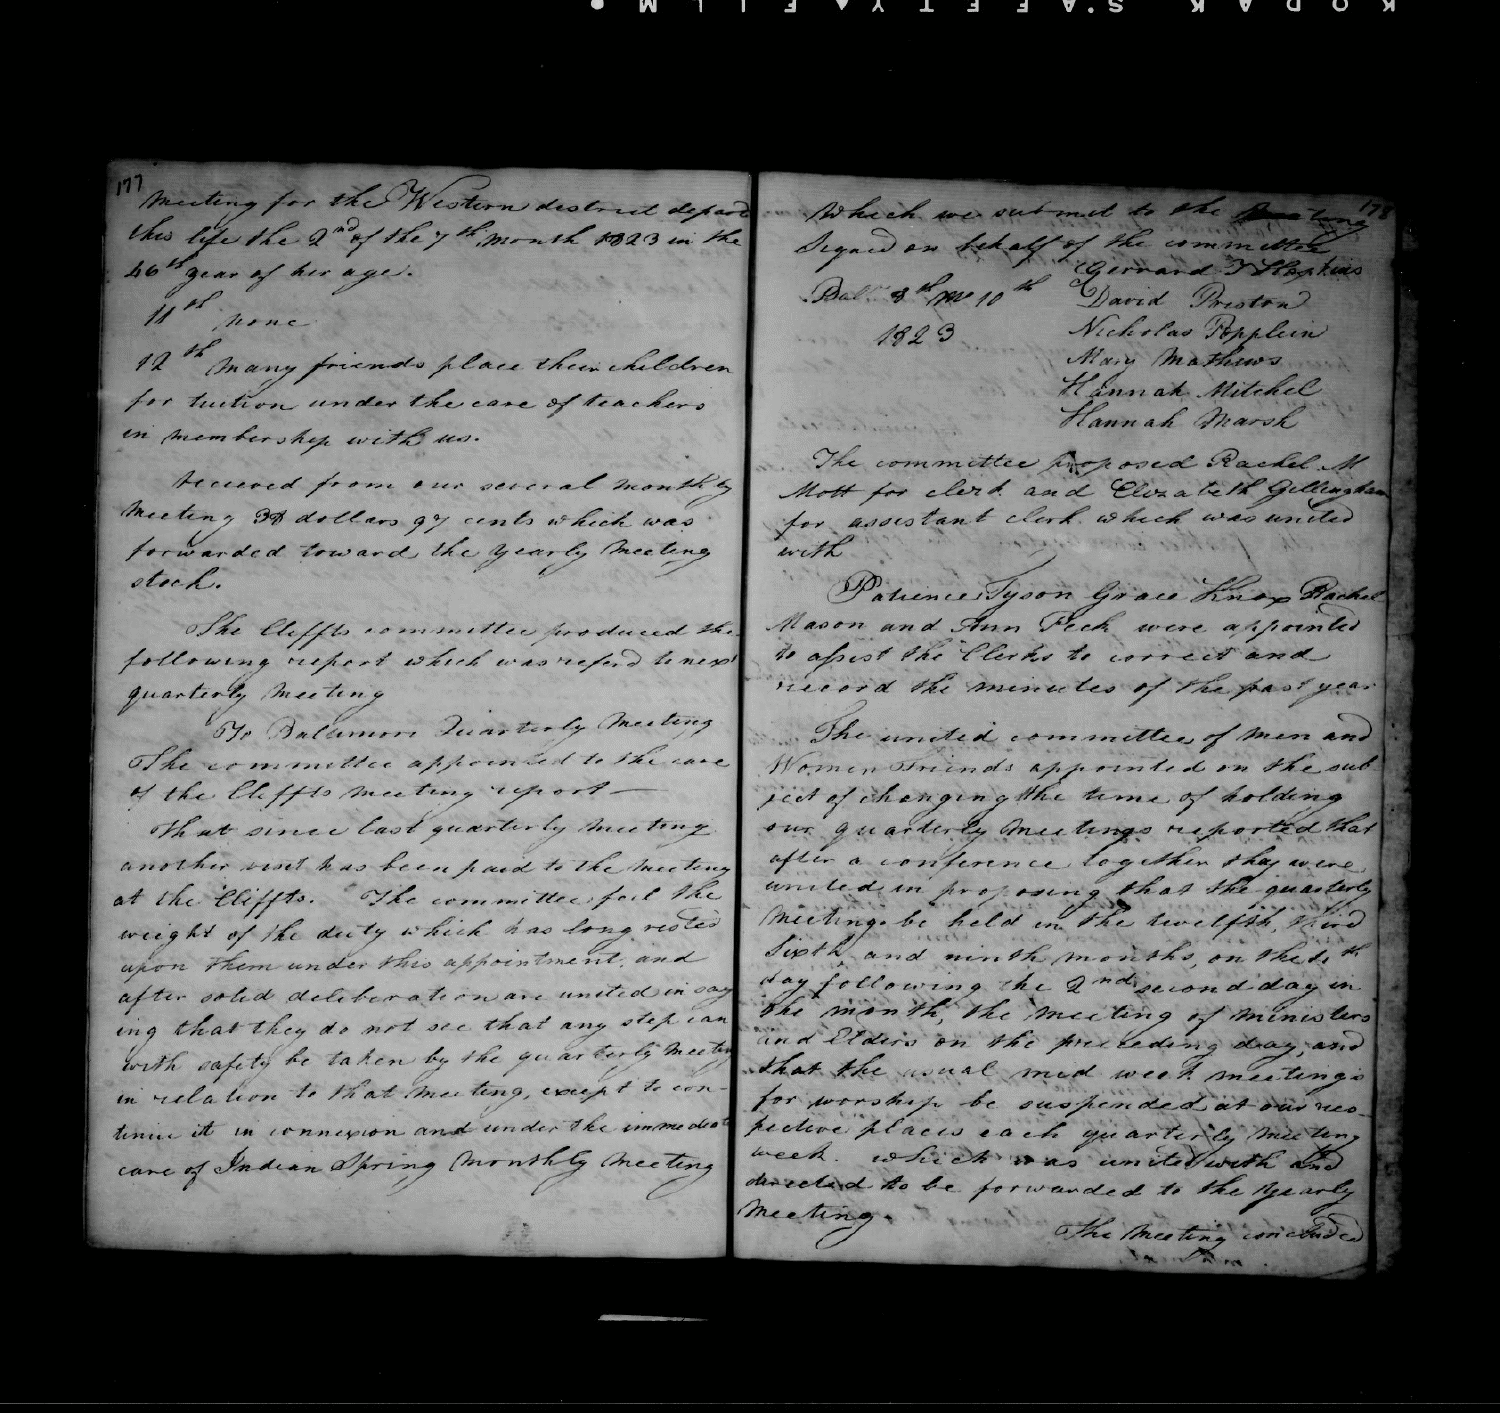 KODAK SAFETY FILM
177
Meeting for the Western destrict depard
this life the 2nd of the 7th month 1823 in the
46th year of her age.
11th none
12th Many friends place their children
for tuition under the care of teachers
in membership with us.
Recieved from our several monthly
Meeting 38 dollars 97 cents which was
forwarded toward the yearly Meeting
stock.
The Cliffts committee produced the
following report which was referd to next
quarterly Meeting
To Baltimore Quarterly Meeting
The committee appointed to the care
of the Cliffts Meeting report —
That since last quarterly Meeting
another visit has been paid to the Meeting
at the Cliffts. The committee feel the
weight of the duty which has long rested
upon them under this appointment, and
after solid deliberation are united in say
ing that they do not see that any step can
with safety be taken by the quarterly Meeting
in relation to that Meeting, except to con-
tinue it in connexion and under the immediate
care of Indian Spring Monthly Meeting
178
Which we submit to the Meeting
Signed on behalf of the committee
Gerrard T Hopkins
Balt 8th Mo 10th David Preston
1823 Nicholas Popplein
Mary Mathews
Hannah Mitchel
Hannah Marsh
The committee proposed Rachel M
Mott for clerk and Elizabeth Gillingham
for assistant clerk which was united
with
Patience Tyson Grace Knox Rachel
Mason and Ann Peck were appointed
to assist the Clerks to correct and
record the minutes of the past year
The united committee of Men and
Women Friends appointed on the sub
ject of changing the time of holding
our quarterly Meetings reported that
after a conference together they were
united in proposing that the quarterly
Meetings be held in the twelfth, third
Sixth and ninth months, on the
day following the 2nd second day in
the month, the Meeting of Ministers
and Elders on the preceeding day, and
that the usual mid week meetings
for worship be suspended at our res-
pective places each quarterly Meeting
week. which was united with and
directed to be forwarded to the Yearly
Meeting.
The Meeting concluded